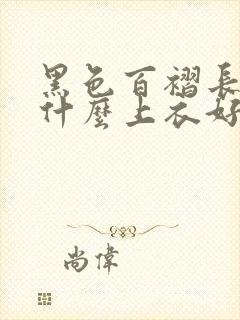 黑色百褶長
什麼上衣好
尚偉